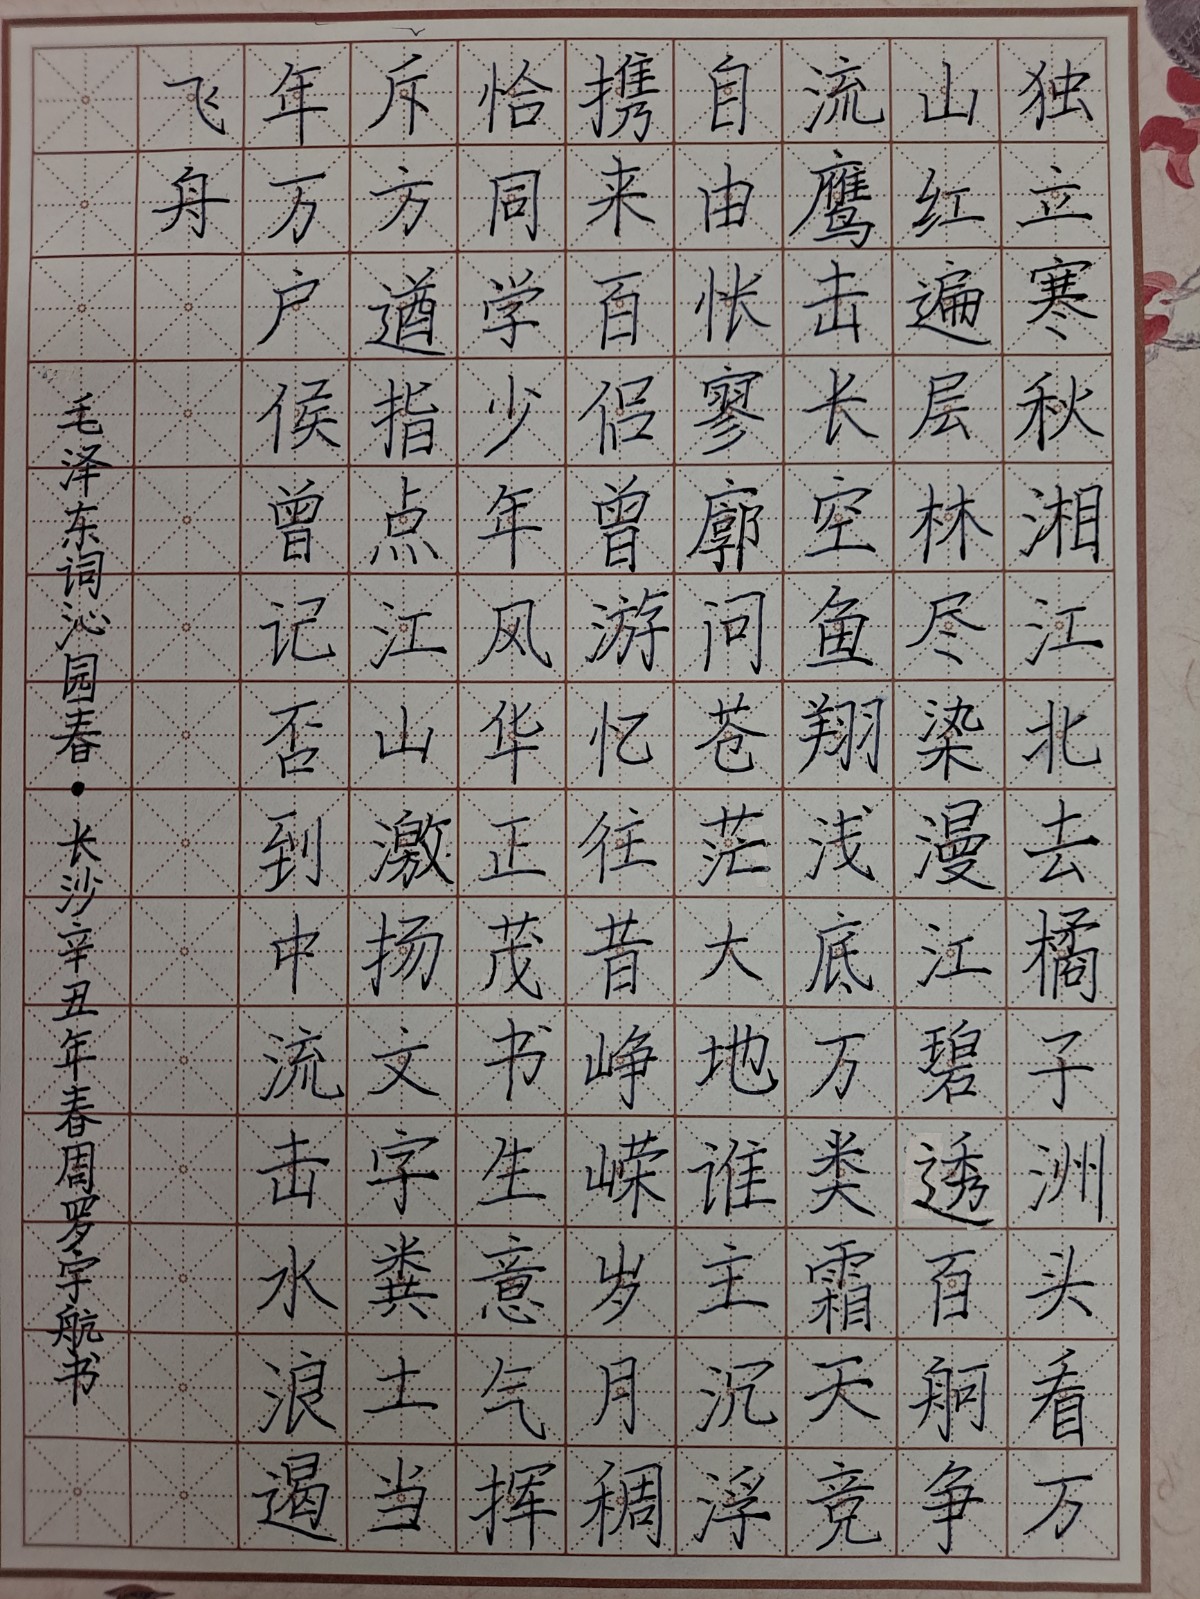 独立寒秋湘江北去橘子洲头看万
山红遍层林尽染漫江碧透百舸争
流鹰击长空鱼翔浅底万类霜天竞
自由怅寥廓问苍茫大地谁主沉浮
携来百侣曾游忆往昔峥嵘岁月稠
恰同学少年风华正茂书生意气挥
斥方遒指点江山激扬文字粪土当
年万户侯曾记否到中流击水浪遏
飞舟
毛泽东词沁园春·长沙辛丑年春周罗宇航书